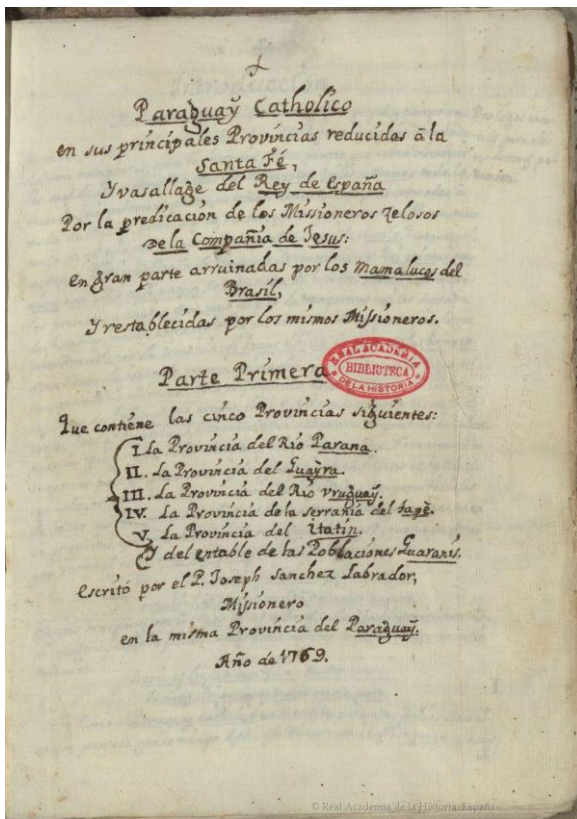 Paraguaÿ Catholico
en sus principales Provincias reducidas â la
Santa Fé,
Y vasallage del Rey de España
Por la predicacion de los Missioneros zelosos
de la Compañia de Jesus:
en gran parte arruinadas por los Mamalucos del
Brasil,
Y restablecidas por los mismos Missioneros.
REAL ACADEMIA
BIBLIOTECA
DE LA HISTORIA
Parte Primera
Que contiene las cinco Provincias siguientes:
I. La Provincia del Rio Parana.
II. La Provincia del Guaÿra.
III. La Provincia del Rio Vruguaÿ.
IV. La Provincia de la serrania del tape.
V. La Provincia del itatin.
Y del entable de las Poblaciones Guaranis.
escrito por el P. Joseph Sanchez Labrador,
Missionero
en la misma Provincia del Paraguaÿ.
Año de 1769.
© Real Academia de la Historia. España